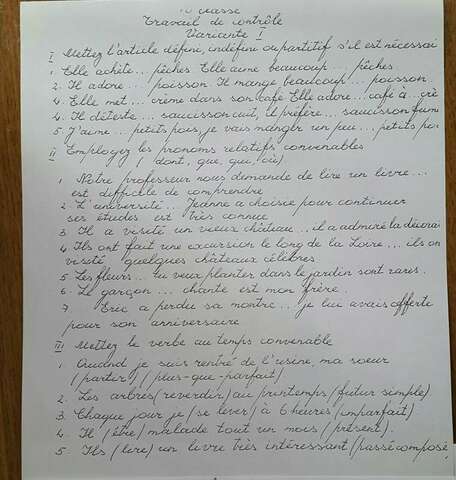 classe
Travail de contrôle
Variante I
I Mettez l'article défini, indéfini ou partitif s'il est nécessai
1. Elle achète... pêches. Elle aime beaucoup... pêches.
2. Il adore... poisson. Il mange beaucoup... poisson.
4. Elle met... crème dans son café Elle adore... café à... crè
4. Il déteste... saucisson cuit, il préfère... saucisson fumé
5. J'aime... petits pois, je vais manger un peu... petits poi
II Employez les pronoms relatifs convenables
(dont, que, qui, où)
1. Notre professeur nous demande de lire un livre...
est difficile de comprendre
2. L'université... Jeanne a choisie pour continuer
ses études est très connue
3. Il a visité un vieux château... il a admiré la décora
4. Ils ont fait une excursion le long de la Loire... ils on
visité quelques châteaux célèbres
5. Les fleurs... tu veux planter dans le jardin sont rares.
6. Le garçon... chante est mon frère.
7. Eric a perdu sa montre... je lui avais offerte
pour son anniversaire
III Mettez le verbe au temps convenable
1. Quand je suis rentré de l'usine, ma soeur
(partir) (plus-que-parfait)
2. Les arbres (reverdir) au printemps (futur simple)
3. Chaque jour je (se lever) à 6 heures (imparfait).
4. Il (être) malade tout un mois (présent).
5. Ils (lire) un livre très intéressant (passé composé)